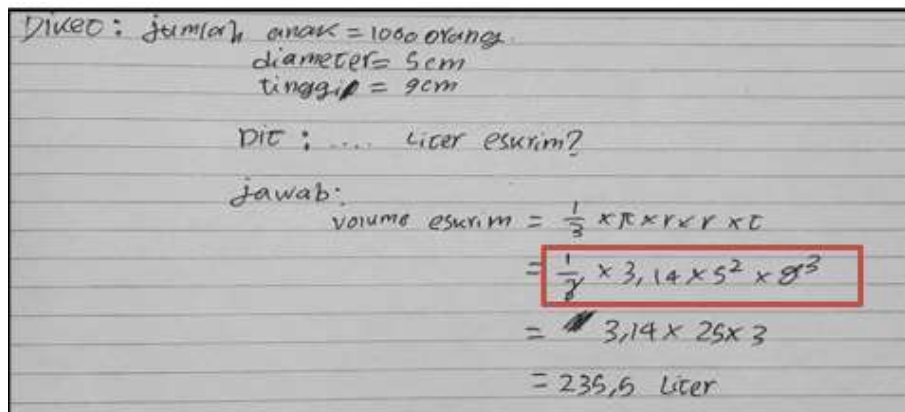 Diket : jumlah anak = 1000 orang.
diameter = 5cm
tinggi = 9cm
Dit : .... Liter eskrim?
jawab:
volume eskrim = 1/3 × π × r × r × t
= 1/3 × 3,14 × 5² × 9³
= 3,14 × 25 × 3
= 235,5 Liter